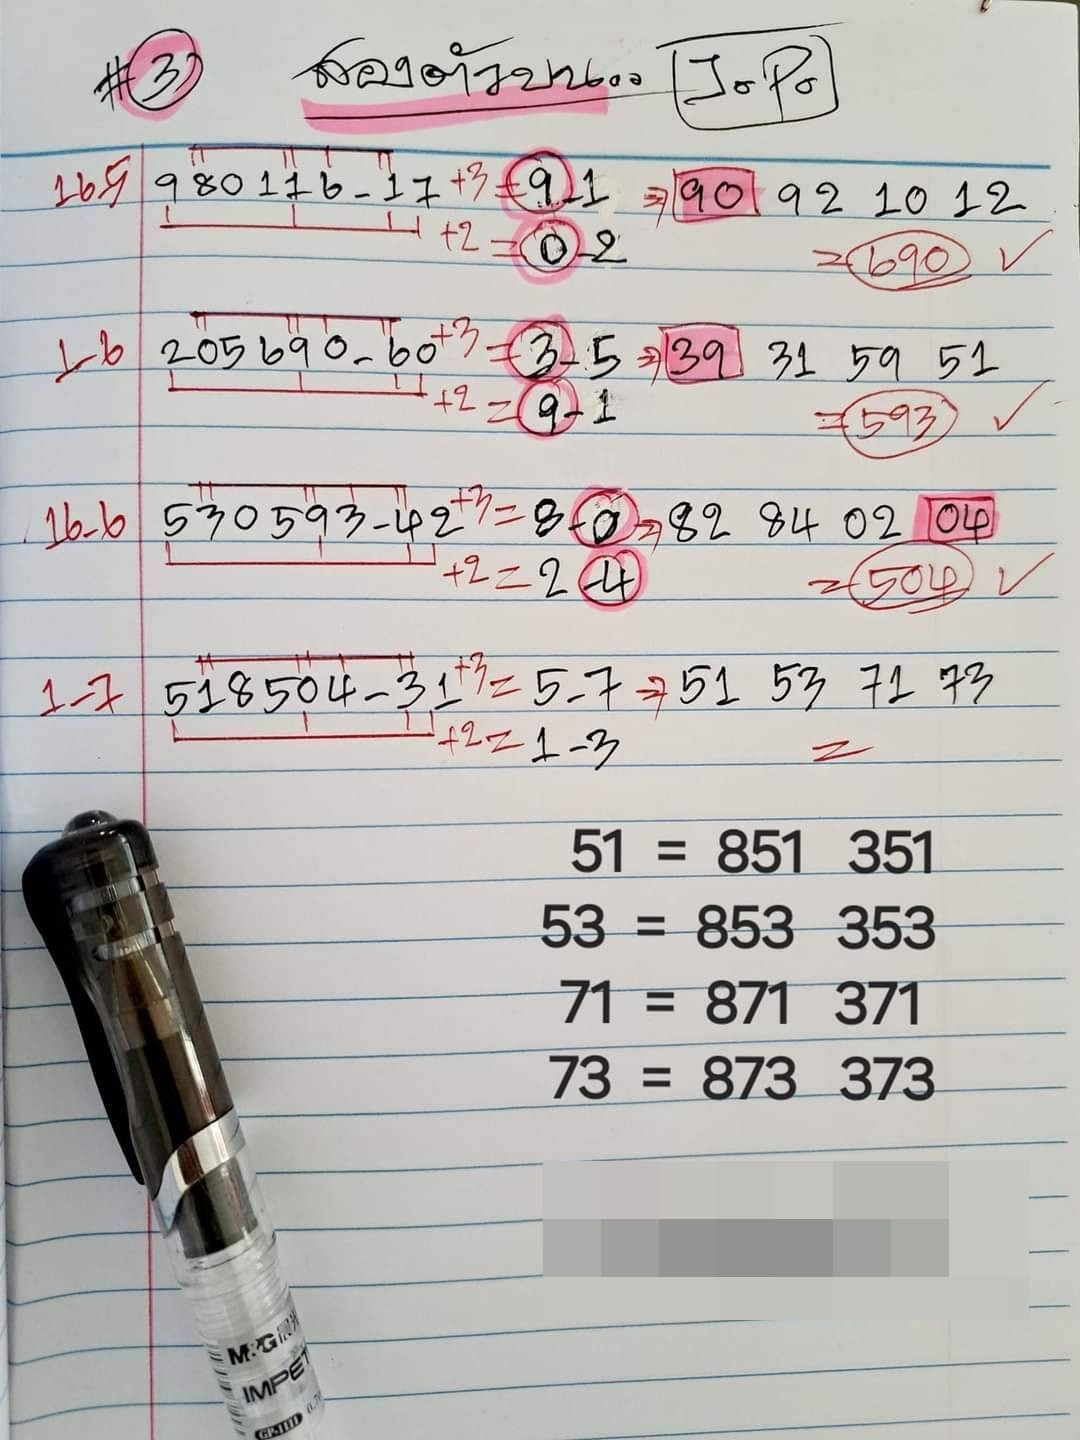 #3 สองตัวบน.. JoPo
16.5 980176-17 +3 = 9-1 ⇒ 90 92 10 12
+2 = 0-2 = 690 ✓
1-6 205690-60 +3 = 3-5 ⇒ 39 31 59 51
+2 = 9-1 = 593 ✓
16-6 530593-42 +3 = 8-0 ⇒ 82 84 02 04
+2 = 2-4 = 504 ✓
1-7 518504-31 +3 = 5-7 ⇒ 51 53 71 73
+2 = 1-3 =
51 = 851 351
53 = 853 353
71 = 871 371
73 = 873 373
M&G
IMPE
GP-1111